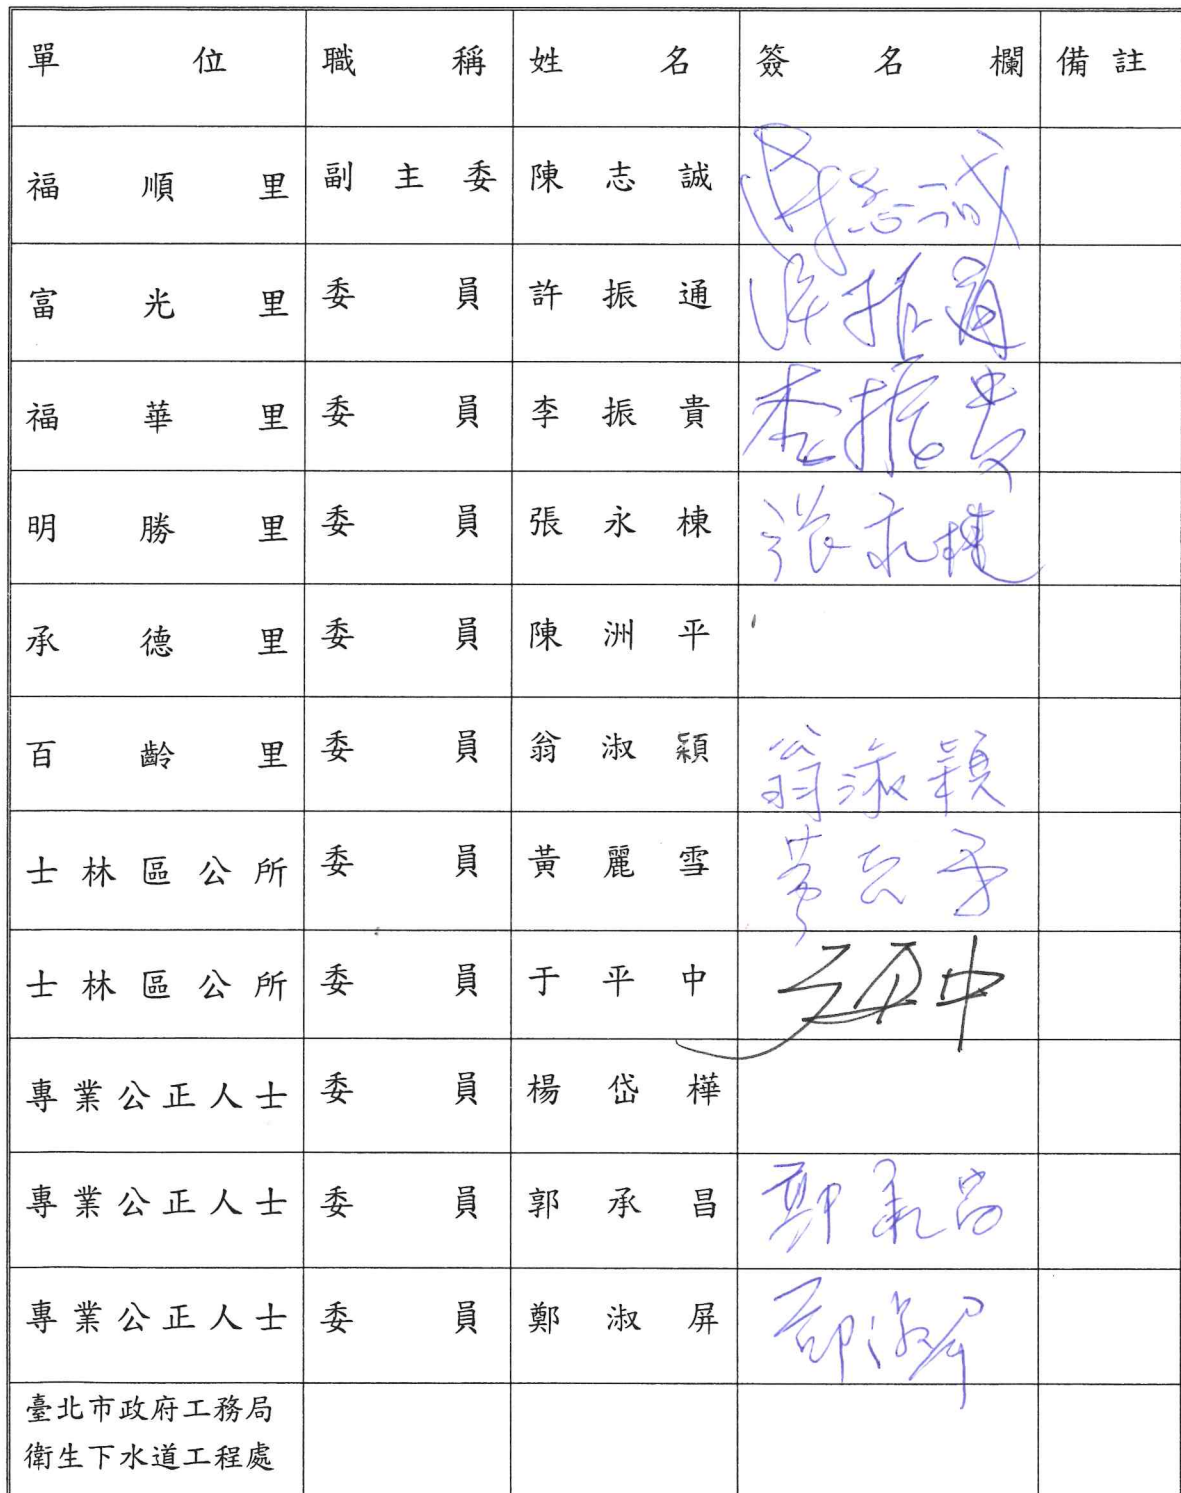 單位 職稱 姓名 簽名欄 備註
福順里 副主委 陳志誠 陳志誠
富光里 委員 許振通 許振通
福華里 委員 李振貴 李振貴
明勝里 委員 張永棟 張永棟
承德里 委員 陳洲平
百齡里 委員 翁淑穎 翁淑穎
士林區公所 委員 黃麗雪
士林區公所 委員 于平中 于平中
專業公正人士 委員 楊岱樺
專業公正人士 委員 郭承昌 郭承昌
專業公正人士 委員 鄭淑屏 鄭淑屏
臺北市政府工務局
衛生下水道工程處